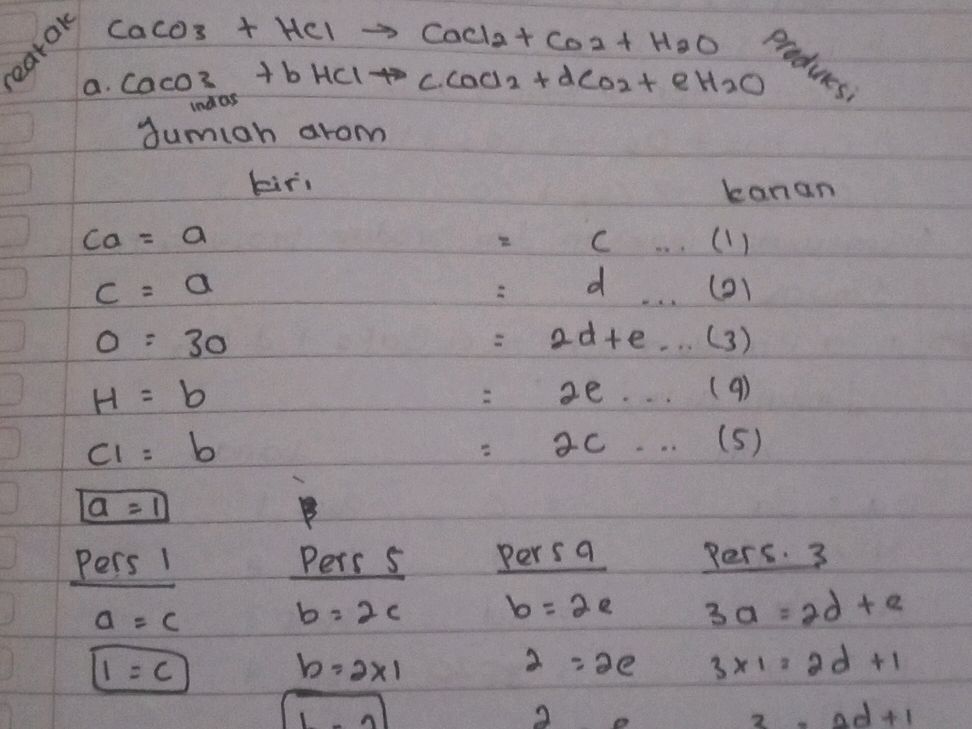 reaktok
CaCO3 + HCl → CaCl2 + CO2 + H2O
Produksi
a. CaCO3 + b HCl → c.CaCl2 + dCO2 + e H2O
indas
Jumlah atom
kiri kanan
Ca = a = c ... (1)
C = a = d ... (2)
O = 3a = 2d + e ... (3)
H = b = 2e ... (4)
Cl = b = 2c ... (5)
a = 1
Pers 1 Pers 5 Pers 4 Pers. 3
a = c b = 2c b = 2e 3a = 2d + e
1 = c b = 2x1 2 = 2e 3x1 = 2d + 1
b = 2 2 e 3 = 2d + 1